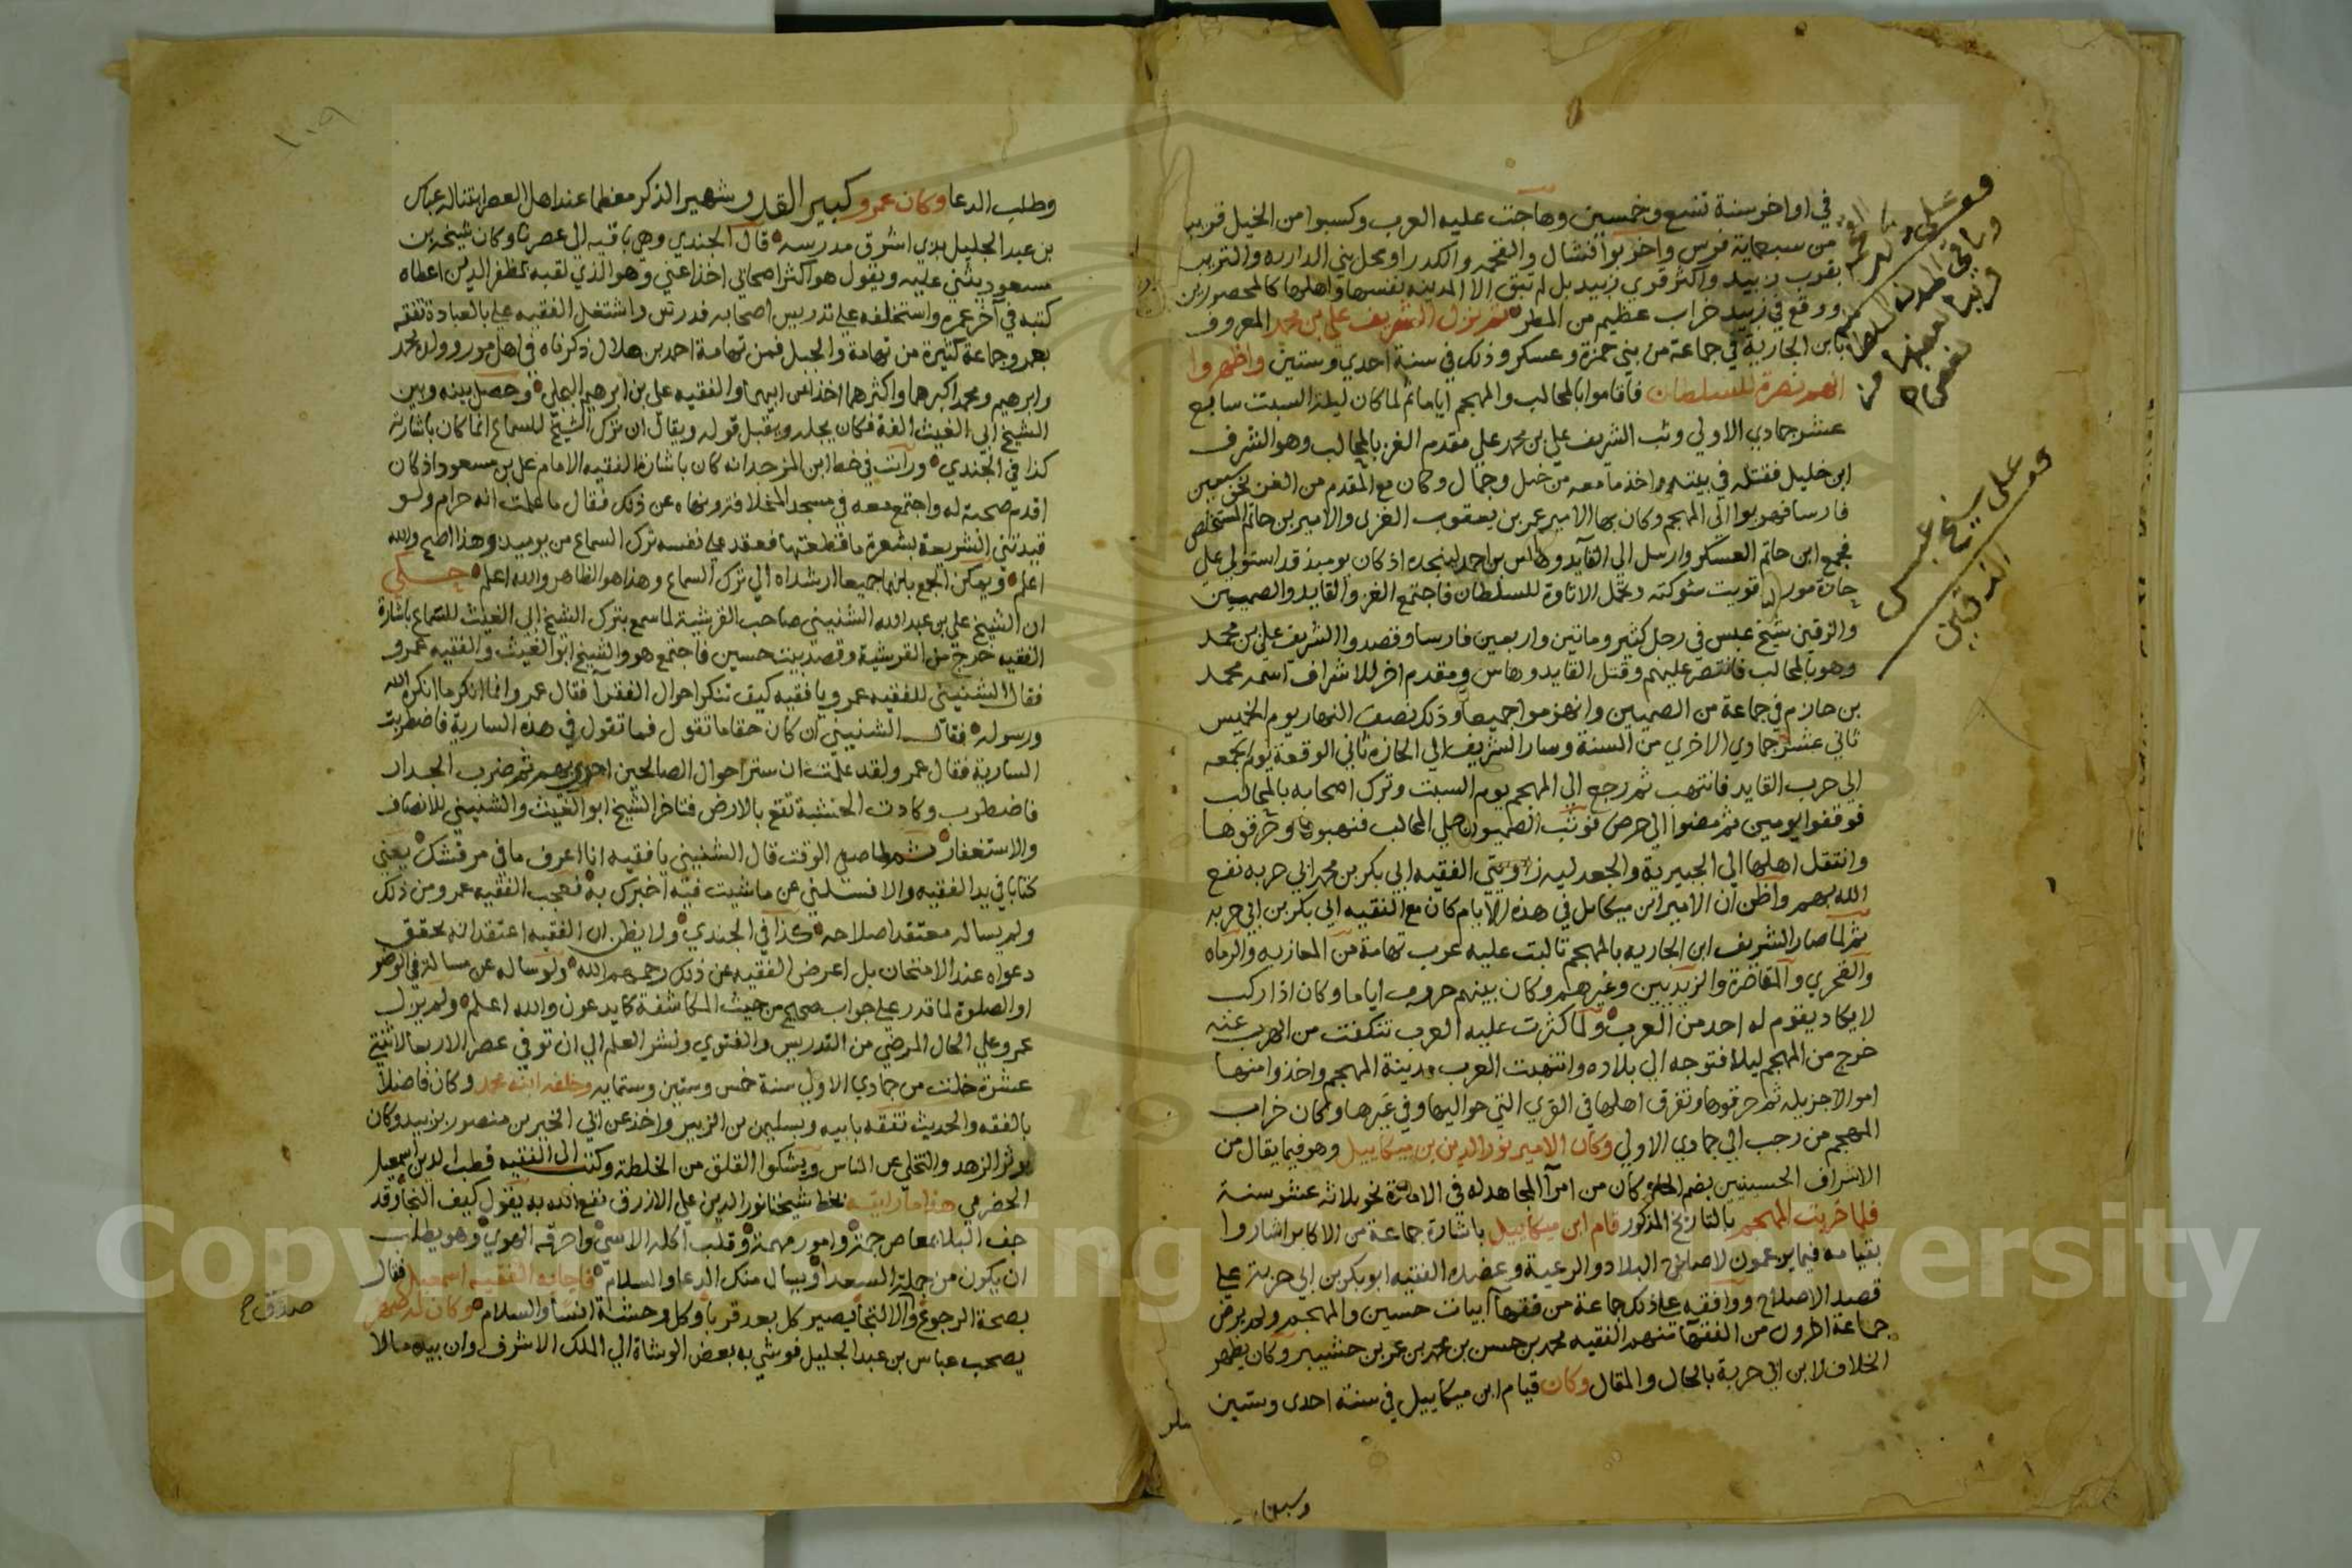 في اواخر سنة تسع وخمسين وهاجت عليه العرب وكسبوا من الخيل قريب
من سبعماية فرس واخربوا فشال والقحمه والكدرا ومحل بني الدارده والتريبه
بقرب زبيد واكثر قري زبيد بل لم تبق الا المدينه نفسها واهلها كالمحصورين
ووقع في زبيد خراب عظيم من المطر ثم نزل الشريف علي بن محمد المعروف
بابن الجاربة في جماعة من بني حمزة وعسكر وذلك في سنة احدي وستين واظهروا
انهم نصرة للسلطان فاقاموا بالمحالب والمهجم اياما ثم لما كان ليلة السبت سابع
عشر جمادي الاولي وثب الشريف علي بن محمد علي مقدم الغز بالمحالب وهو الشرف
ابن خليل فقتله في بيته واخذ ما معه من خيل وجمال وكان مع المقدم من الغز نحو سبعين
فارسا فهربوا الي المهجم وكان بها الامير عمر بن يعقوب الغزي والامير بن حاتم المستخلص
فجمع ابن حاتم العسكر وارسل الي القايد وهاس بن احمد لينجده اذ كان يوميذ قد استولي علي
جازة مور قويت شوكته وتحمل الاتاوة للسلطان فاجتمع الغز والقايد والصميين
والزقين شيخ عبس في رجل كثير ومائتين واربعين فارسا وقصدوا الشريف علي بن محمد
وهو بالمحالب فانتصر عليهم وقتل القايد وهاس ومقدم اخر للاشراف اسمه محمد
بن حازم في جماعة من الصميين وانهزموا جميعا وذلك نصف النهار يوم الخميس
ثاني عشر جمادي الاخري من السنة وسار الشريف الي الجازة ثاني الوقعة يوم الجمعه
الي حرب القايد فانتهب ثم رجع الي المهجم يوم السبت وترك اصحابه بالمحالب
فوقفوا يومين ثم مضوا الي حرض فوثب الصميون علي المحالب فنهبوها وحرقوها
وانتقل اهلها الي الجبيرية والجعدليه زاويتي الفقيه ابي بكر بن محمد ابي حربه نفع
الله بهم واظن ان الامير ابن ميكاىل في هذه الايام كان مع الفقيه ابي بكر بن ابي حربه
ثم لما صار الشريف ابن الجاربه بالمهجم تالبت عليه عرب تهامة من المعازبه والرماه
والقحري والمقاصرة والزيديين وغيرهم وكان بينهم حروب اياما وكان اذا ركب
لا يكاد يقوم له احد من العرب ولما كثرت عليه العرب تنكفت من الهرب عنه
خرج من المهجم ليلا فتوجه الي بلاده وانتهبت العرب مدينة المهجم واخذوا منها
اموالا جزيله ثم حرقوها وتفرق اهلها في القري التي حواليها وفي غيرها وكان خراب
المهجم من رجب الي جمادي الاولي وكان الامير نور الدين بن ميكاييل وهو فيما يقال من
الاشراف الحسينيين بضم الحا وكان من امرآ المجاهد له في الامارة نحو ثلاثه عشر سنة
فلما خربت المهجم بالتاريخ المذكور قام ابن ميكاييل باشارة جماعة من الاكابر اشاروا
بقيامه فيما يزعمون لاصلاح البلاد والرعية وعضده الفقيه ابو بكر بن ابي حربة علي
قصد الاصلاح ووافقه علي ذلك جماعة من فقهآ ابيات حسين والمهجم ولم يرض
جماعة اخرون من الفقهآ منهم الفقيه محمد بن حسن بن محمد بن عمر بن حشيبر وكان يظهر
الخلاف لابن ابي حربة بالحال والمقال وكان قيام ابن ميكاييل في سنة احدي وستين
وسبعماية
علي شيخ عبس
الزقين
١٠٩
وطلب الدعا وكان عمرو كبير القدر وشهير الذكر معظما عند اهل العصر ابتنا له عباس
بن عبد الجليل بذي اشرق مدرسه قال الجندي وهي باقيه الي عصرنا وكان شيخه بن
مسعود يثني عليه ويقول هو اكثر اصحابي اخذا عني وهو الذي لقبه بمظفر الدين اعطاه
كتبه في آخر عمره واستخلفه علي تدريس اصحابه فدرس واشتغل الفقيه علي بالعبادة تفقه
بعمرو جماعة كثيرة من تهامة والجبل فمن تهامة احمد بن هلال ذكرناه في اهل مور وولده محمد
وابرهيم ومحمد اكبرهما واكثرهما اخذا عن ابيهما والفقيه علي بن ابرهيم البجلي وحصل بينه وبين
الشيخ ابي الغيث الفة فكان يجله ويقبل قوله ويقال ان ترك الشيخ للسماع انما كان باشارته
كذا في الجندي ورأيت في خط ابن المزجد انه كان باشارة الفقيه الامام علي بن مسعود اذ كان
اقدم صحبة له واجتمع معه في مسجد المخلافه ونهاه عن ذلك فقال ما علمت انه حرام ولو
قيدتني الشريعة بشعرة ما قطعتها فعقد علي نفسه ترك السماع من يوميذ وهذا اصح والله
اعلم ويمكن الجمع بانهما جميعا ارشداه الي ترك السماع وهذا هو الظاهر والله اعلم حكي
ان الشيخ علي بن عبد الله الشنيني صاحب القرشية لما سمع بترك الشيخ ابي الغيث للسماع باشارة
الفقيه خرج من القرشية وقصد بيت حسين فاجتمع هو والشيخ ابو الغيث والفقيه عمرو
فقال الشنيني للفقيه عمرو يا فقيه كيف تنكر احوال الفقرآ فقال عمرو انما انكر ما انكره الله
ورسوله فقال الشنيني ان كان حقا ما تقول فما تقول في هذه السارية فاضطربت
السارية فقال عمرو لقد علمت ان ستر احوال الصالحين احري بهم ثم ضرب الجدار
فاضطرب وكادت الخشبة تقع بالارض فتاخر الشيخ ابو الغيث والشنيني للانصاف
والاستغفار ثم لما صفي الوقت قال الشنيني يا فقيه انا اعرف ما في مرقشك يعني
كتابا في يد الفقيه والا فسلني عن ما شيت فيه اخبرك به فعجب الفقيه عمرو من ذلك
ولم يساله معتقدا صلاحه كذا في الجندي ولا يظن ان الفقيه اعتقد انه يحقق
دعواه عند الامتحان بل اعرض الفقيه عن ذلك رحمهم الله ولو ساله عن مسالة في الوضو
او الصلوة لما قدر علي جواب صحيح من حيث المكاشفة كما يدعون والله اعلم ولم يزل
عمرو علي الحال المرضي من التدريس والفتوي ونشر العلم الي ان توفي عصر الاربعا لاثنتي
عشرة خلت من جمادي الاول سنة خمس وستين وستمايه وخلفه ابنه محمد وكان فاضلا
بالفقه والحديث تفقه بابيه وبسليمن بن الزبير واخذ عن ابي الخير بن منصور بزبيد وكان
يوثر الزهد والتخلي عن الناس ويشكوا القلق من الخلطة وكتب الي الفقيه قطب الدين اسمعيل
الحضرمي هذا ما رايته بخط شيخنا نور الدين علي الازرق نفع الله به يقول كيف النجا وقد
حف البلا بمعاص جمة وامور مهمة وقلب اكله الاسي واحرقه الهوي وهو يطلب
ان يكون من جملة السعدا ويسال منك الدعا والسلام فاجابه الفقيه اسمعيل فقال
بصحة الرجوع والالتجا يصير كل بعد قربا وكل وحشة انسا والسلام وكان لمحمد
يصحب عباس بن عبد الجليل فوشي به بعض الوشاة الي الملك الاشرف وان بيده مالا
Copyright © King Saud University
1957